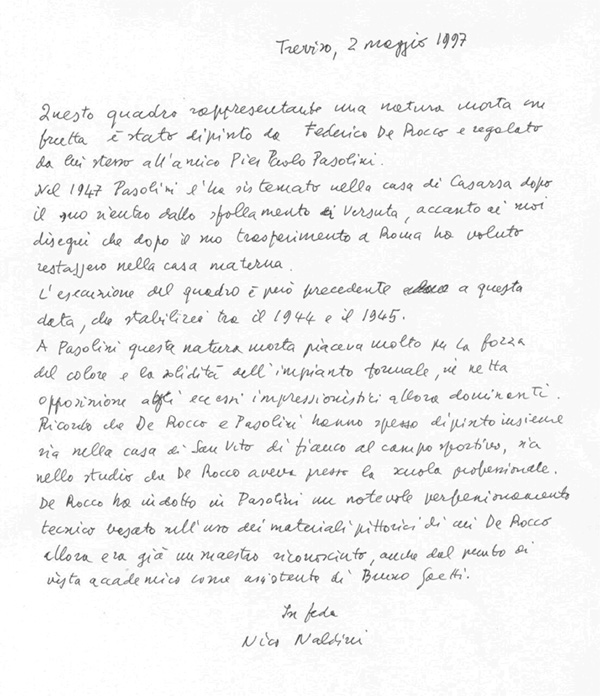 Treviso, 2 maggio 1997
Questo quadro rappresentante una natura morta con
frutta è stato dipinto da Federico De Rocco e regalato
da lui stesso all'amico Pier Paolo Pasolini.
Nel 1947 Pasolini l'ha sistemato nella casa di Casarsa dopo
il suo rientro dallo sfollamento di Versuta, accanto ai suoi
disegni che dopo il suo trasferimento a Roma ha voluto
restassero nella casa materna.
L'esecuzione del quadro è però precedente a questa
data, che stabilirei tra il 1944 e il 1945.
A Pasolini questa natura morta piaceva molto per la forza
del colore e la solidità dell'impianto formale, in netta
opposizione agli eccessi impressionistici allora dominanti.
Ricordo che De Rocco e Pasolini hanno spesso dipinto insieme
sia nella casa di San Vito di fianco al campo sportivo, sia
nello studio che De Rocco aveva presso la scuola professionale.
De Rocco ha indotto in Pasolini un notevole perfezionamento
tecnico basato sull'uso dei materiali pittorici di cui De Rocco
allora era già un maestro riconosciuto, anche dal punto di
vista accademico come assistente di Bruno Saetti.
In fede
Nico Naldini